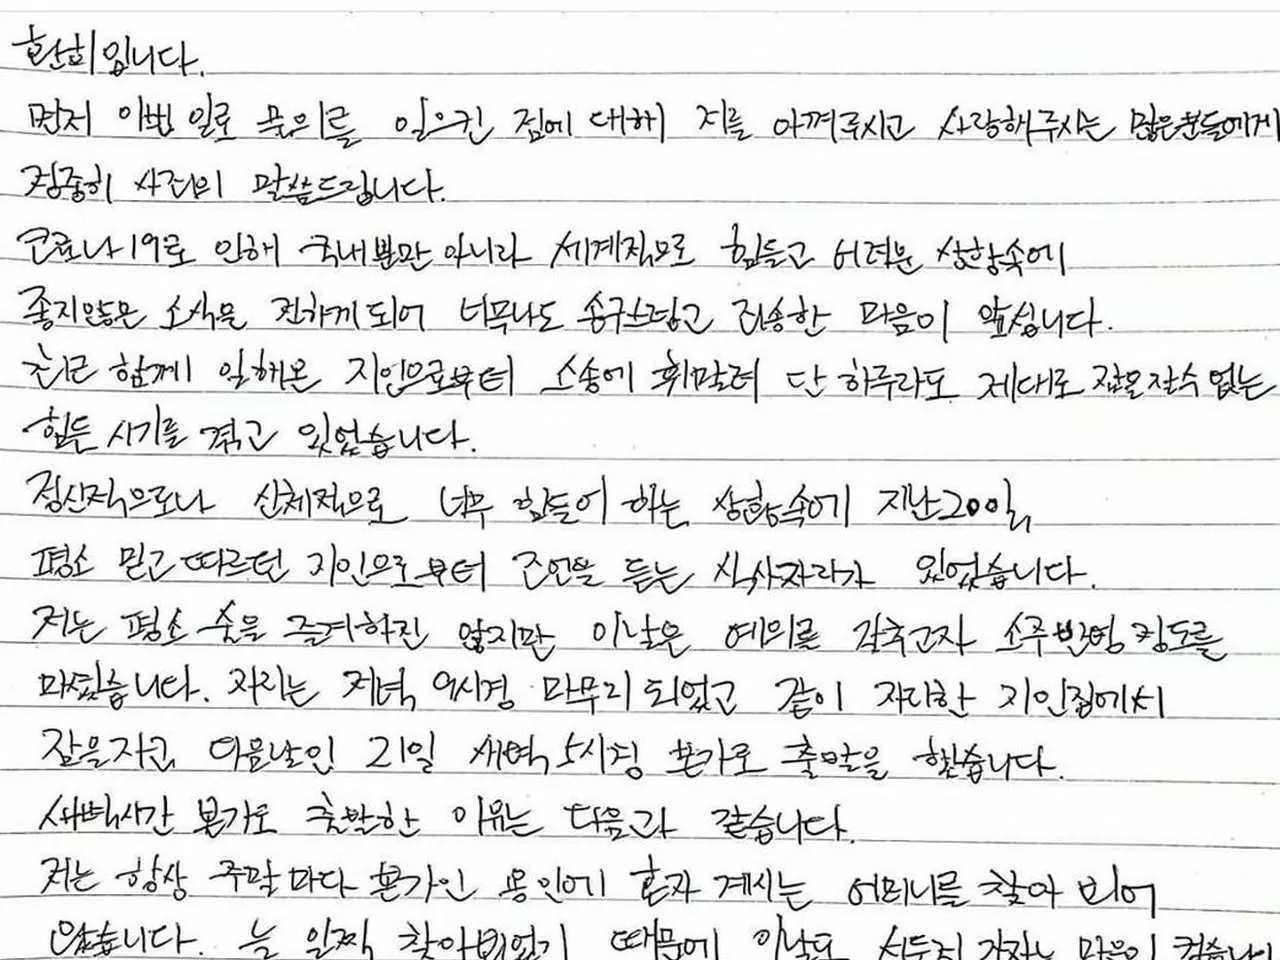 환희입니다.
먼저 이번 일로 물의를 일으킨 점에 대해 저를 아껴주시고 사랑해주시는 많은분들에게
정중히 사죄의 말씀드립니다.
코로나19로 인해 국내뿐만 아니라 세계적으로 힘들고 어려운 상황속에
좋지않은 소식을 전하게되어 너무나도 송구스럽고 죄송한 마음이 앞섭니다.
최근 함께 일해온 지인으로부터 소송에 휘말려 단 하루라도 제대로 잠을잘수 없는
힘든 시기를 겪고 있었습니다.
정신적으로나 신체적으로 너무 힘들어 하는 상황속에 지난20일,
평소 믿고 따르던 지인으로부터 조언을 듣는 식사자리가 있었습니다.
저는 평소 술을 즐겨하진 않지만 이날은 예의를 갖추고자 소주반병 정도를
마셨습니다. 자리는 저녁 9시경 마무리 되었고 같이 자리한 지인집에서
잠을자고, 다음날인 21일 새벽 5시경 본가로 출발을 했습니다.
새벽시간 본가로 출발한 이유는 다음과 같습니다.
저는 항상 주말마다 본가인 용인에 혼자 계시는 어머니를 찾아 뵈어
왔습니다. 늘 일찍 찾아뵈었기 때문에 이날도 서둘러 가자는 마음이 컸습니다